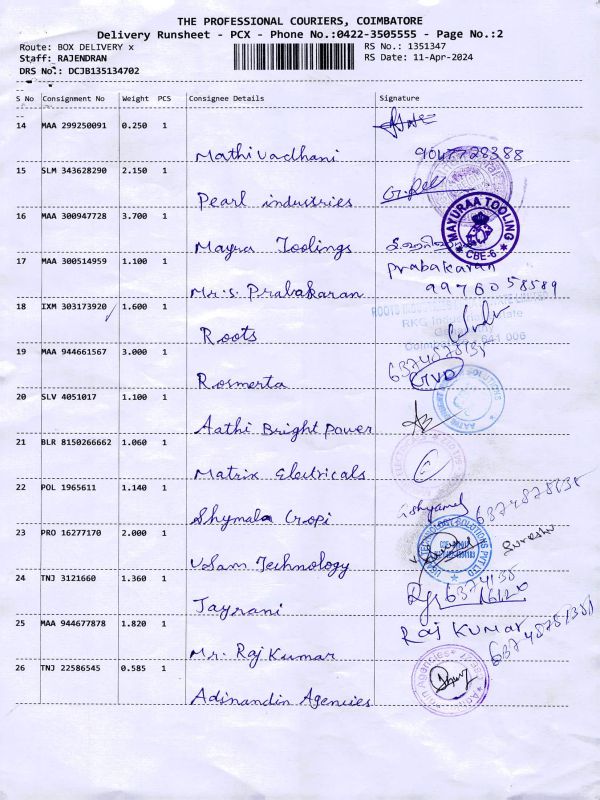 THE PROFESSIONAL COURIERS, COIMBATORE
Delivery Runsheet - PCX - Phone No.:0422-3505555 - Page No.:2
Route: BOX DELIVERY x RS No.: 1351347
Staff: RAJENDRAN RS Date: 11-Apr-2024
DRS No.: DCJB135134702
S No Consignment No Weight PCS Consignee Details Signature
14 MAA 299250091 0.250 1
Mathivadhani 9047728388
15 SLM 343628290 2.150 1
Pearl industries
16 MAA 300947728 3.700 1
Mayra Toolings
MAYURAA TOOLING
CBE-6
17 MAA 300514959 1.100 1 Prabakaran
Mr.s. Prabakaran 9976058589
18 IXM 303173920 1.600 1
Roots
19 MAA 944661567 3.000 1
Rosmerta
20 SLV 4051017 1.100 1
Aathi Bright Power
21 BLR 8150266662 1.060 1
Matrix Electricals
22 POL 1965611 1.140 1
Shymala Gopi
23 PRO 16277170 2.000 1
VSam Technology
24 TNJ 3121660 1.360 1
Jayrani
25 MAA 944677878 1.820 1 Raj Kumar
Mr. Raj Kumar
26 TNJ 22586545 0.585 1
Adsnandin Agencies